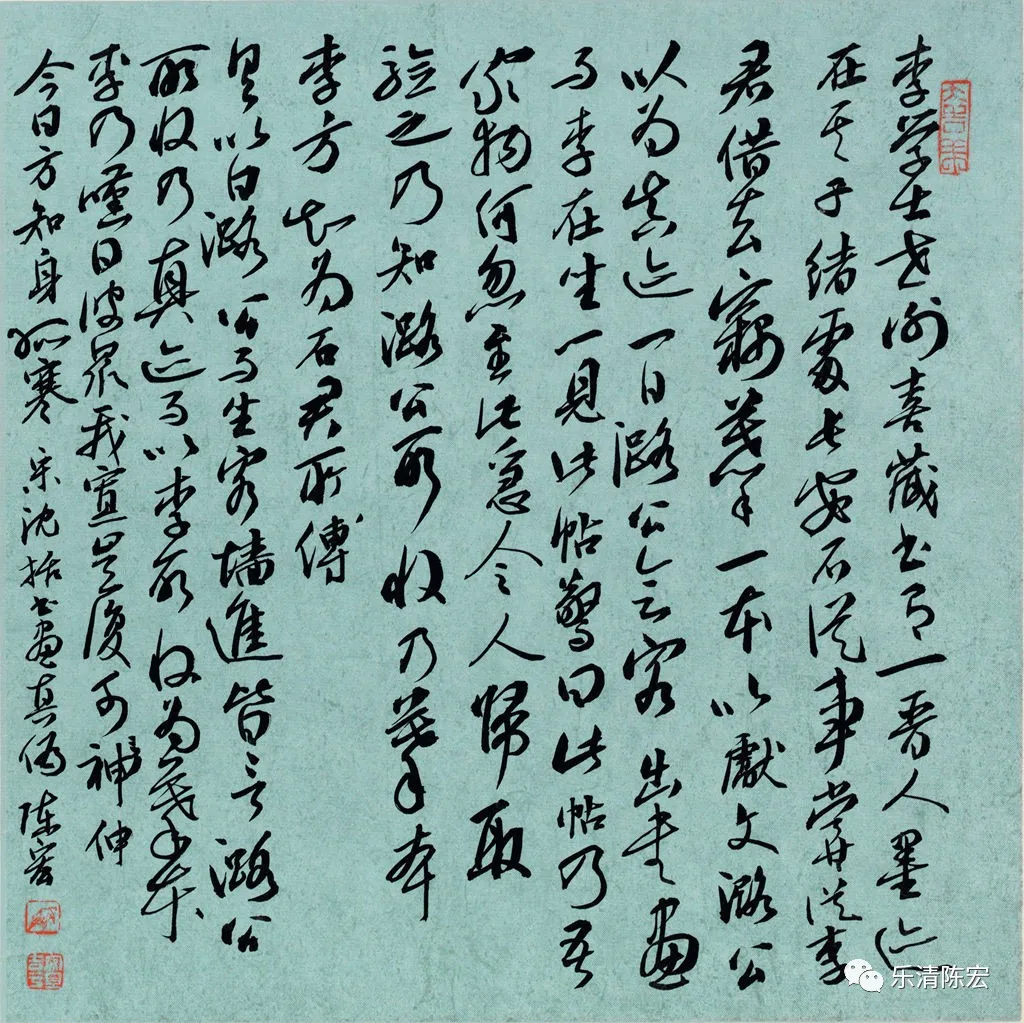 李学士世衡喜藏书有一晋人墨迹
在其子绪處长安石从事尝从李
君借去窃摹一本以獻文潞公
以为真迹一日潞公会客出书画
而李在坐一見此帖驚曰此帖乃吾
家物何忽至此急令人歸取
验之乃知潞公所收乃摹本
李方知为石君所傳
具以白潞公而坐客墙進皆言潞公
所收乃真迹而以李所收为摹本
李乃嘆曰彼眾我寡岂復可神伸
今日方知身孤寒 宋沈括书畫真偽 陈宏
乐清陈宏